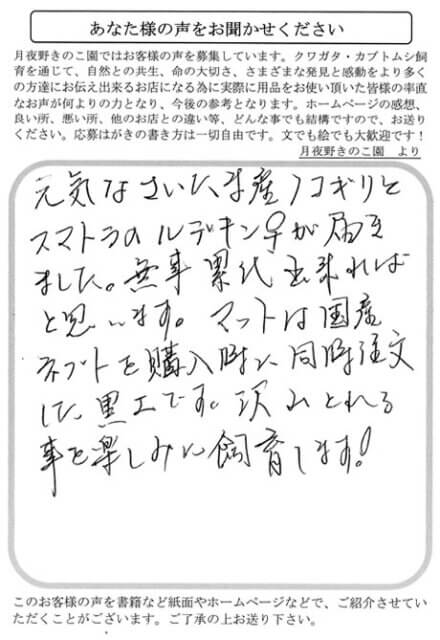 あなた様の声をお聞かせください
月夜野きのこ園ではお客様の声を募集しています。クワガタ・カブトムシ飼
育を通じて、自然との共生、命の大切さ、さまざまな発見と感動をより多く
の方達にお伝え出来るお店になる為に実際に用品をお使い頂いた皆様の率直
なお声が何よりの力となり、今後の参考となります。ホームページの感想、
良い所、悪い所、他のお店との違い等、どんな事でも結構ですので、お送り
ください。応募はがきの書き方は一切自由です。文でも絵でも大歓迎です！
月夜野きのこ園　より
元気なさいたま産ノコギリと
スマトラのルデキン♀が届き
ました。無事累代出来れば
と思います。マットは国産
ネブトを購入時に同時注文
した黒土です。沢山とれる
事を楽しみに飼育します!
このお客様の声を書籍など紙面やホームページなどで、ご紹介させてい
ただくことがございます。ご了承の上お送り下さい。